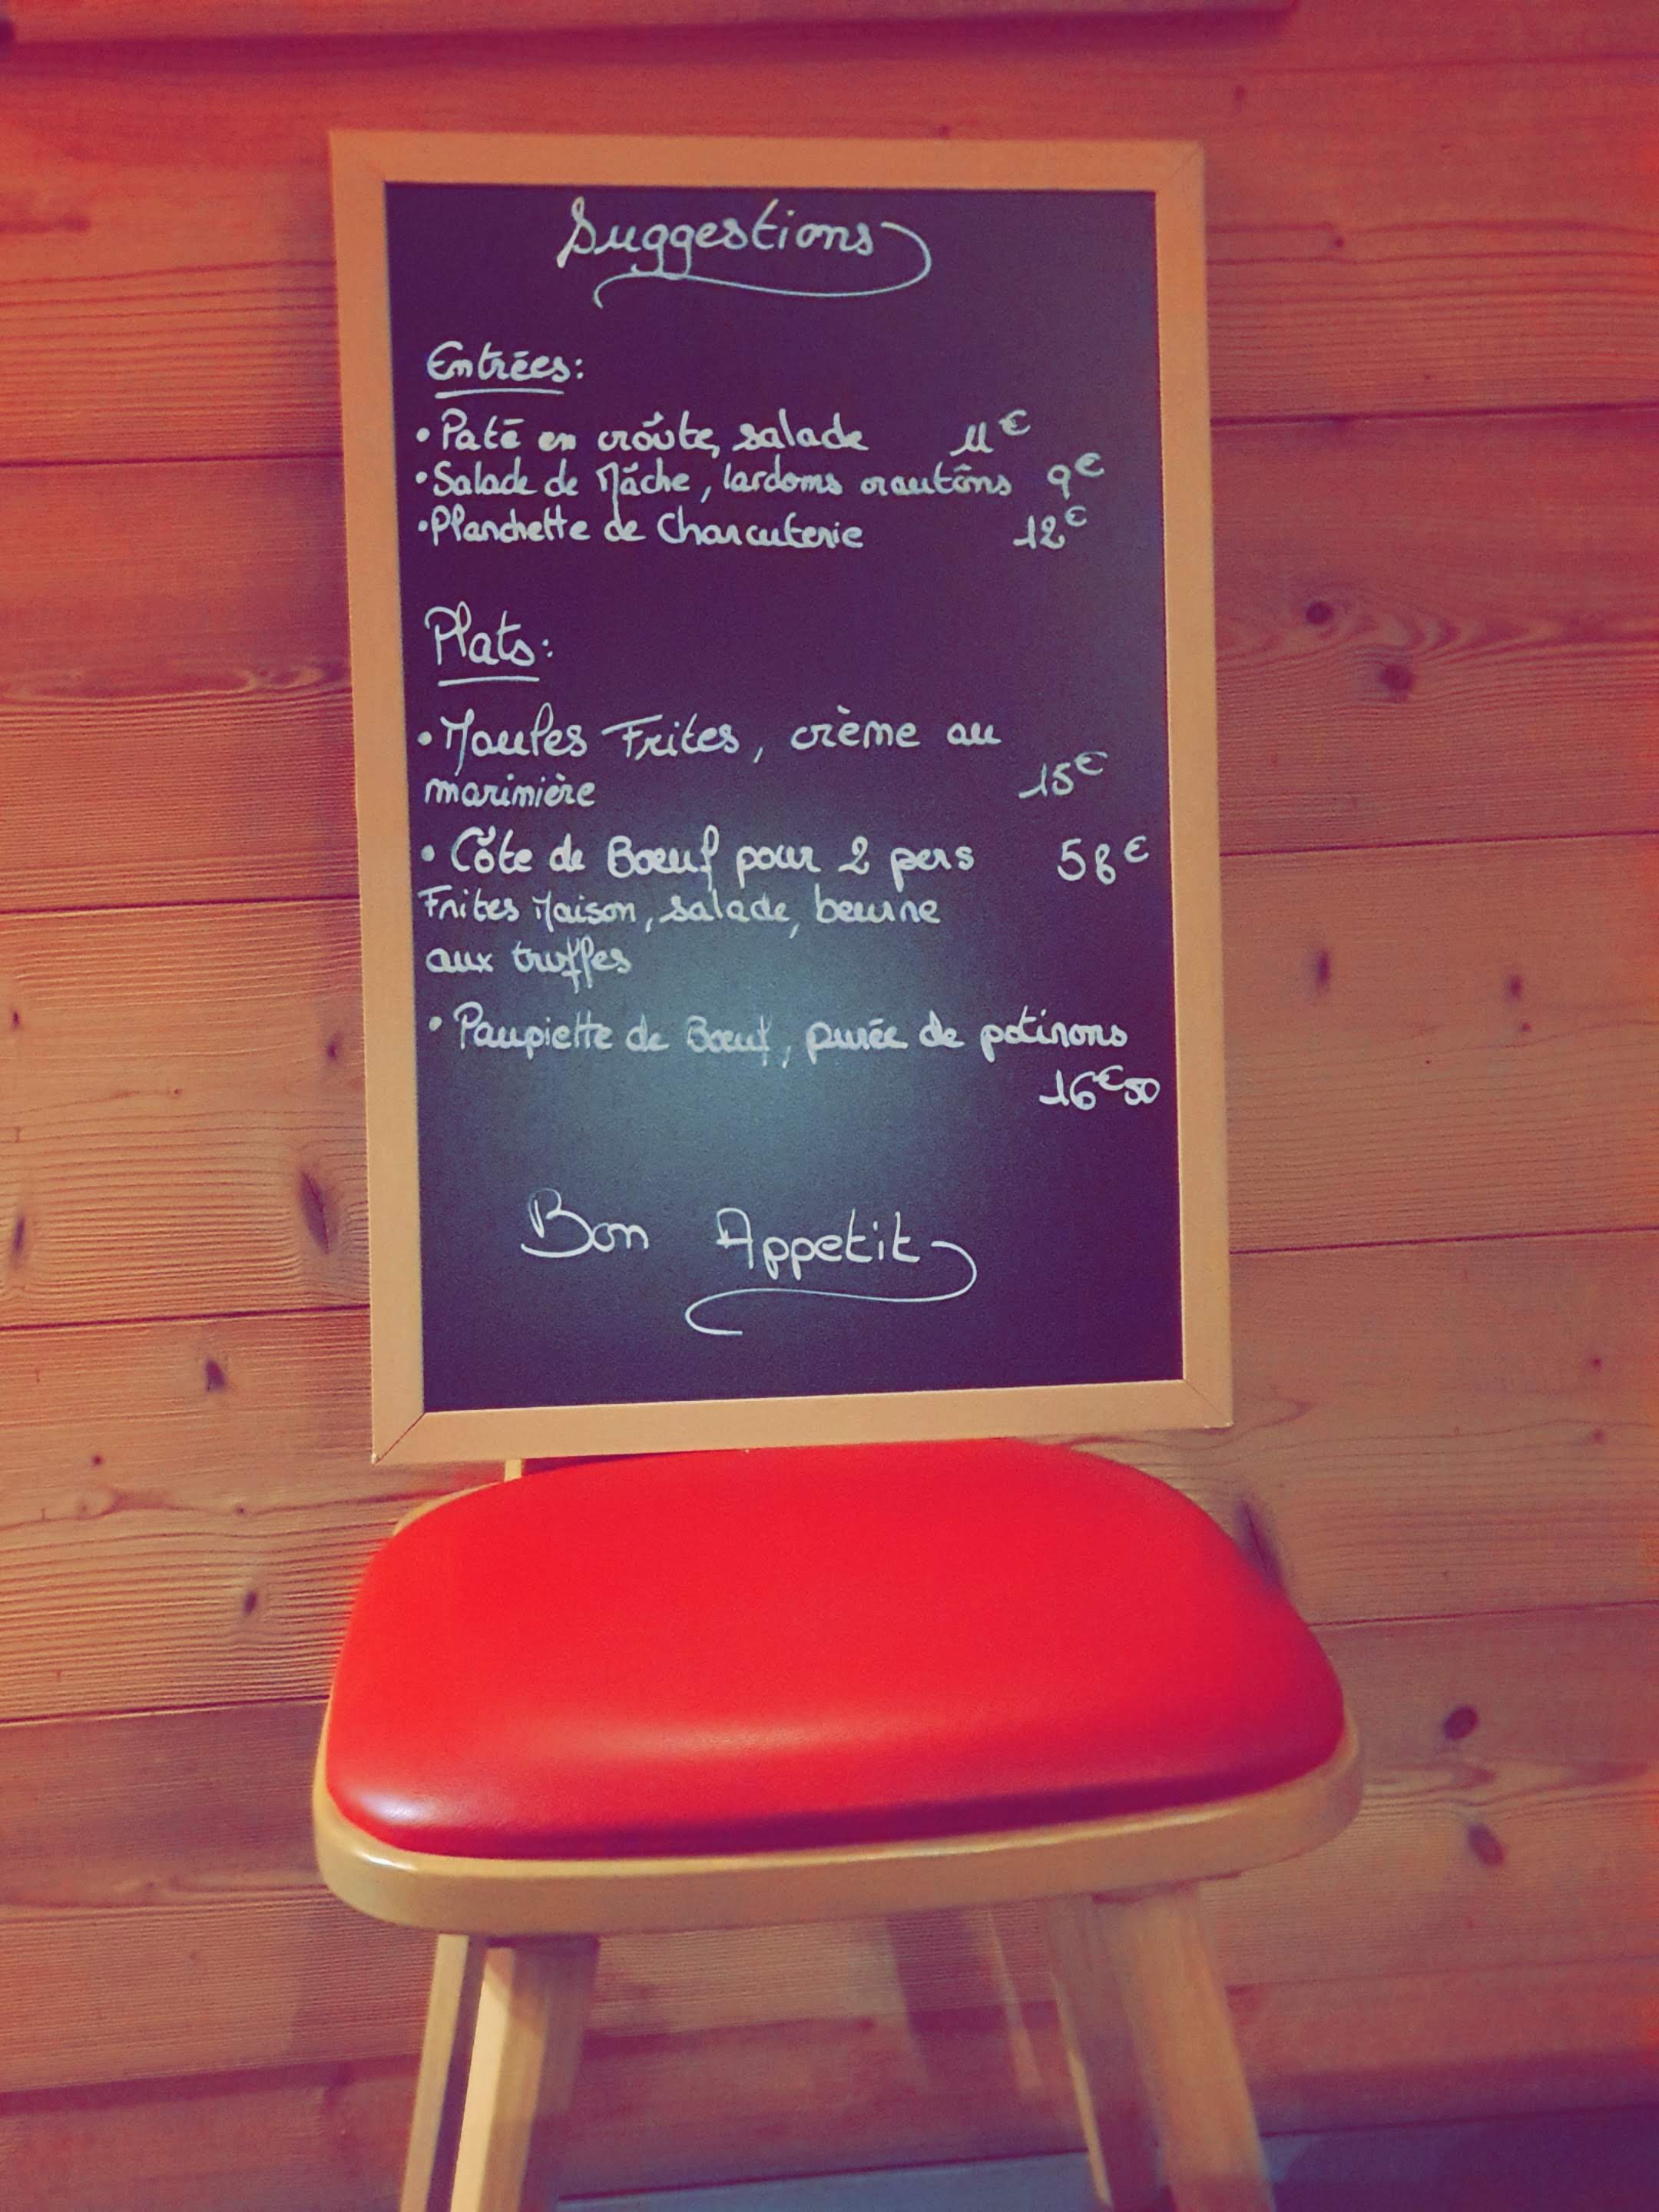 Suggestions
Entrées:
• Paté en croûte, salade 11€
• Salade de Mâche, lardons croutôns 9€
• Planchette de Charcuterie 12€
Plats:
• Moules Frites, crème au
marinière 15€
• Côte de Boeuf pour 2 pers 58€
Frites Maison, salade, beurre
aux truffes
• Paupiette de Boeuf, purée de potirons
16€50
Bon Appetit